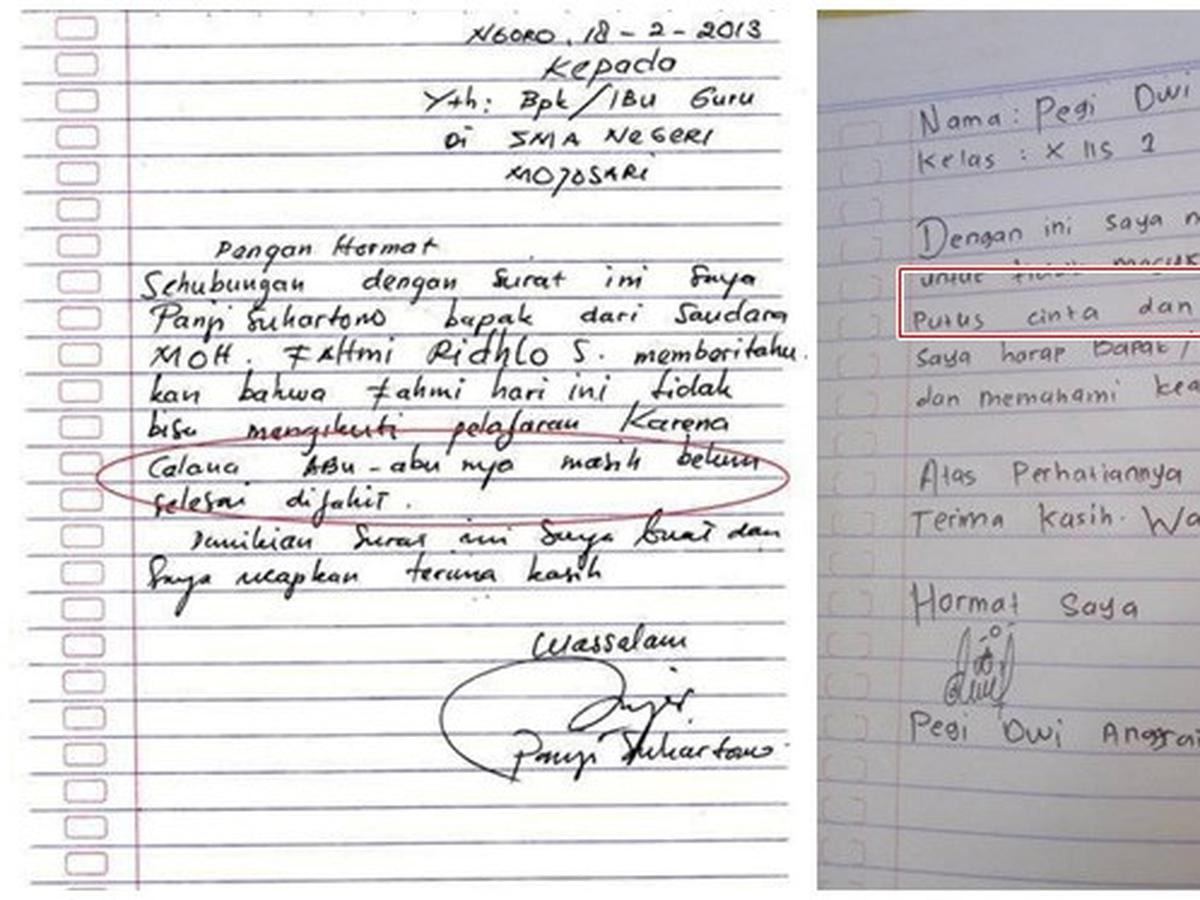 NGORO, 18 - 2 - 2013
Kepada
Yth: Bpk/IBu Guru
Di SMA NEGERI
MOJOSARI
Dengan Hormat
Sehubungan dengan surat ini Saya
Panji Suhartono bapak dari Saudara
MOH. FAHmi Ridhlo S. memberitahu
kan bahwa Fahmi hari ini tidak
bisa mengikuti pelajaran Karena
Celana ABu-abu nya masih belum
selesai dijahit.
Demikian Surat ini Saya buat dan
Saya ucapkan terima kasih
Wassalam
Panji Suhartono
Nama : Pegi Dwi
Kelas : X IIS 1
Dengan ini saya
untuk tidak masuk
Putus cinta dan
Saya harap Bapak/
dan memahami kea
Atas Perhatiannya
Terima Kasih. Wa
Hormat Saya
Pegi Dwi Anggrai